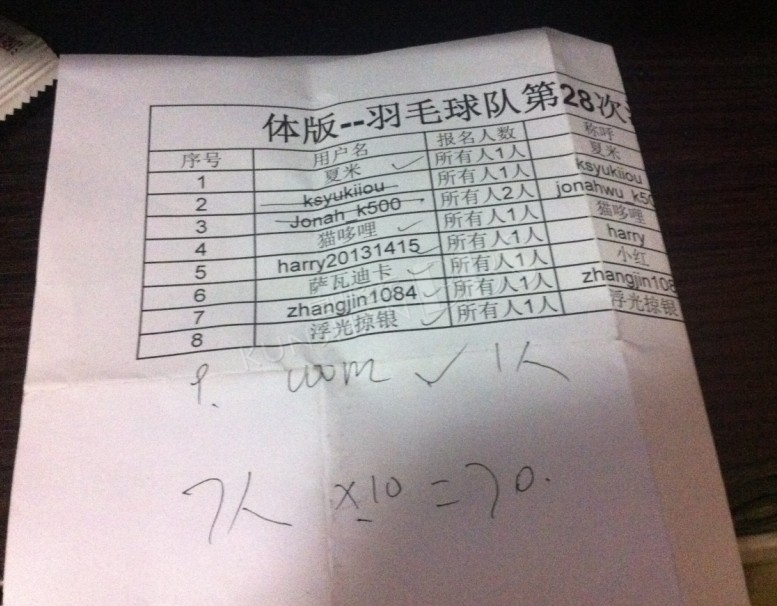 体版--羽毛球队第28次
序号 用户名 报名人数 称呼
1 夏米 ✓ 所有人1人 夏米
2 ksyukiiou 所有人1人 ksyukiiou
3 Jonah_k500 所有人2人 jonahwu_k50
4 猫哆哩 ✓ 所有人1人 猫哆哩
5 harry20131415 ✓ 所有人1人 harry
6 萨瓦迪卡 ✓ 所有人1人 小红
7 zhangjin1084 ✓ 所有人1人 zhangjin108
8 浮光掠银 ✓ 所有人1人 浮光掠银
9. ✓ 1人
7人 ×10 = 70.